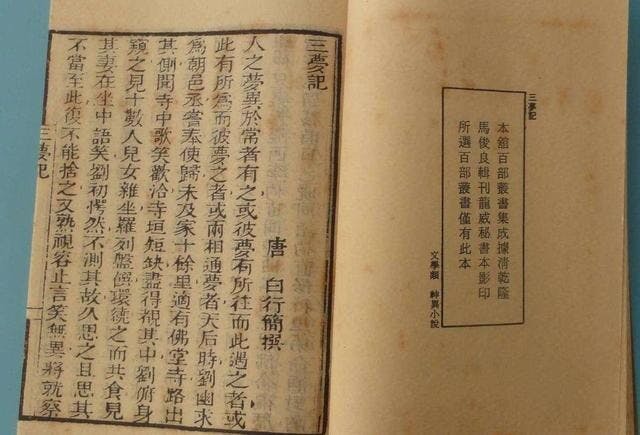 三夢記
本舘百部叢書集成據清乾隆
馬俊良輯刊龍威秘書本影印
所選百部叢書僅有此本
文學類 神異小說
三夢記
唐 白行簡撰
人之夢異於常者有之或彼夢有所往而此遇之者或
此有所爲而彼夢之者或兩相通夢者天后時劉幽求
爲朝邑丞嘗奉使歸未及家十餘里適有佛堂寺路出
其側聞寺中歌笑歡洽寺垣短缺盡得覩其中劉俯身
窺之見十數人兒女雜坐羅列盤饌環繞之而共食見
其妻在坐中語笑劉初愕然不測其故久思之且思其
不當至此復不能捨之又熟視容止言笑無異將就察
三夢記